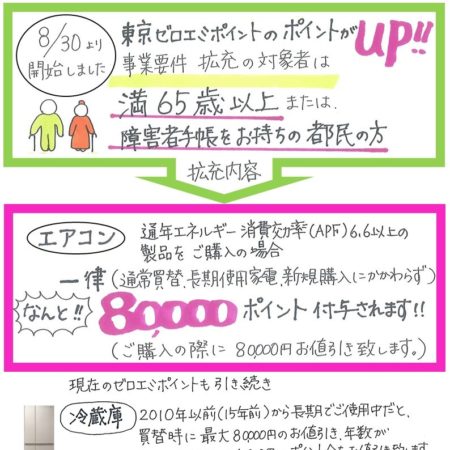 8/30より
開始しました
東京ゼロエミポイントのポイントがup!!
事業要件 拡充の対象者は
満65歳以上 または、
障害者手帳をお持ちの都民の方
拡充内容
エアコン
通年エネルギー消費効率(APF)6.6以上の
製品をご購入の場合
一律(通常買替、長期使用家電、新規購入にかかわらず)
なんと!!
80,000ポイント付与されます!!
(ご購入の際に 80,000円お値引き致します。)
現在のゼロエミポイントも引き続き
冷蔵庫
2010年以前(15年前)から長期でご使用中だと、
買替時に最大80000円のお値引き、年数が